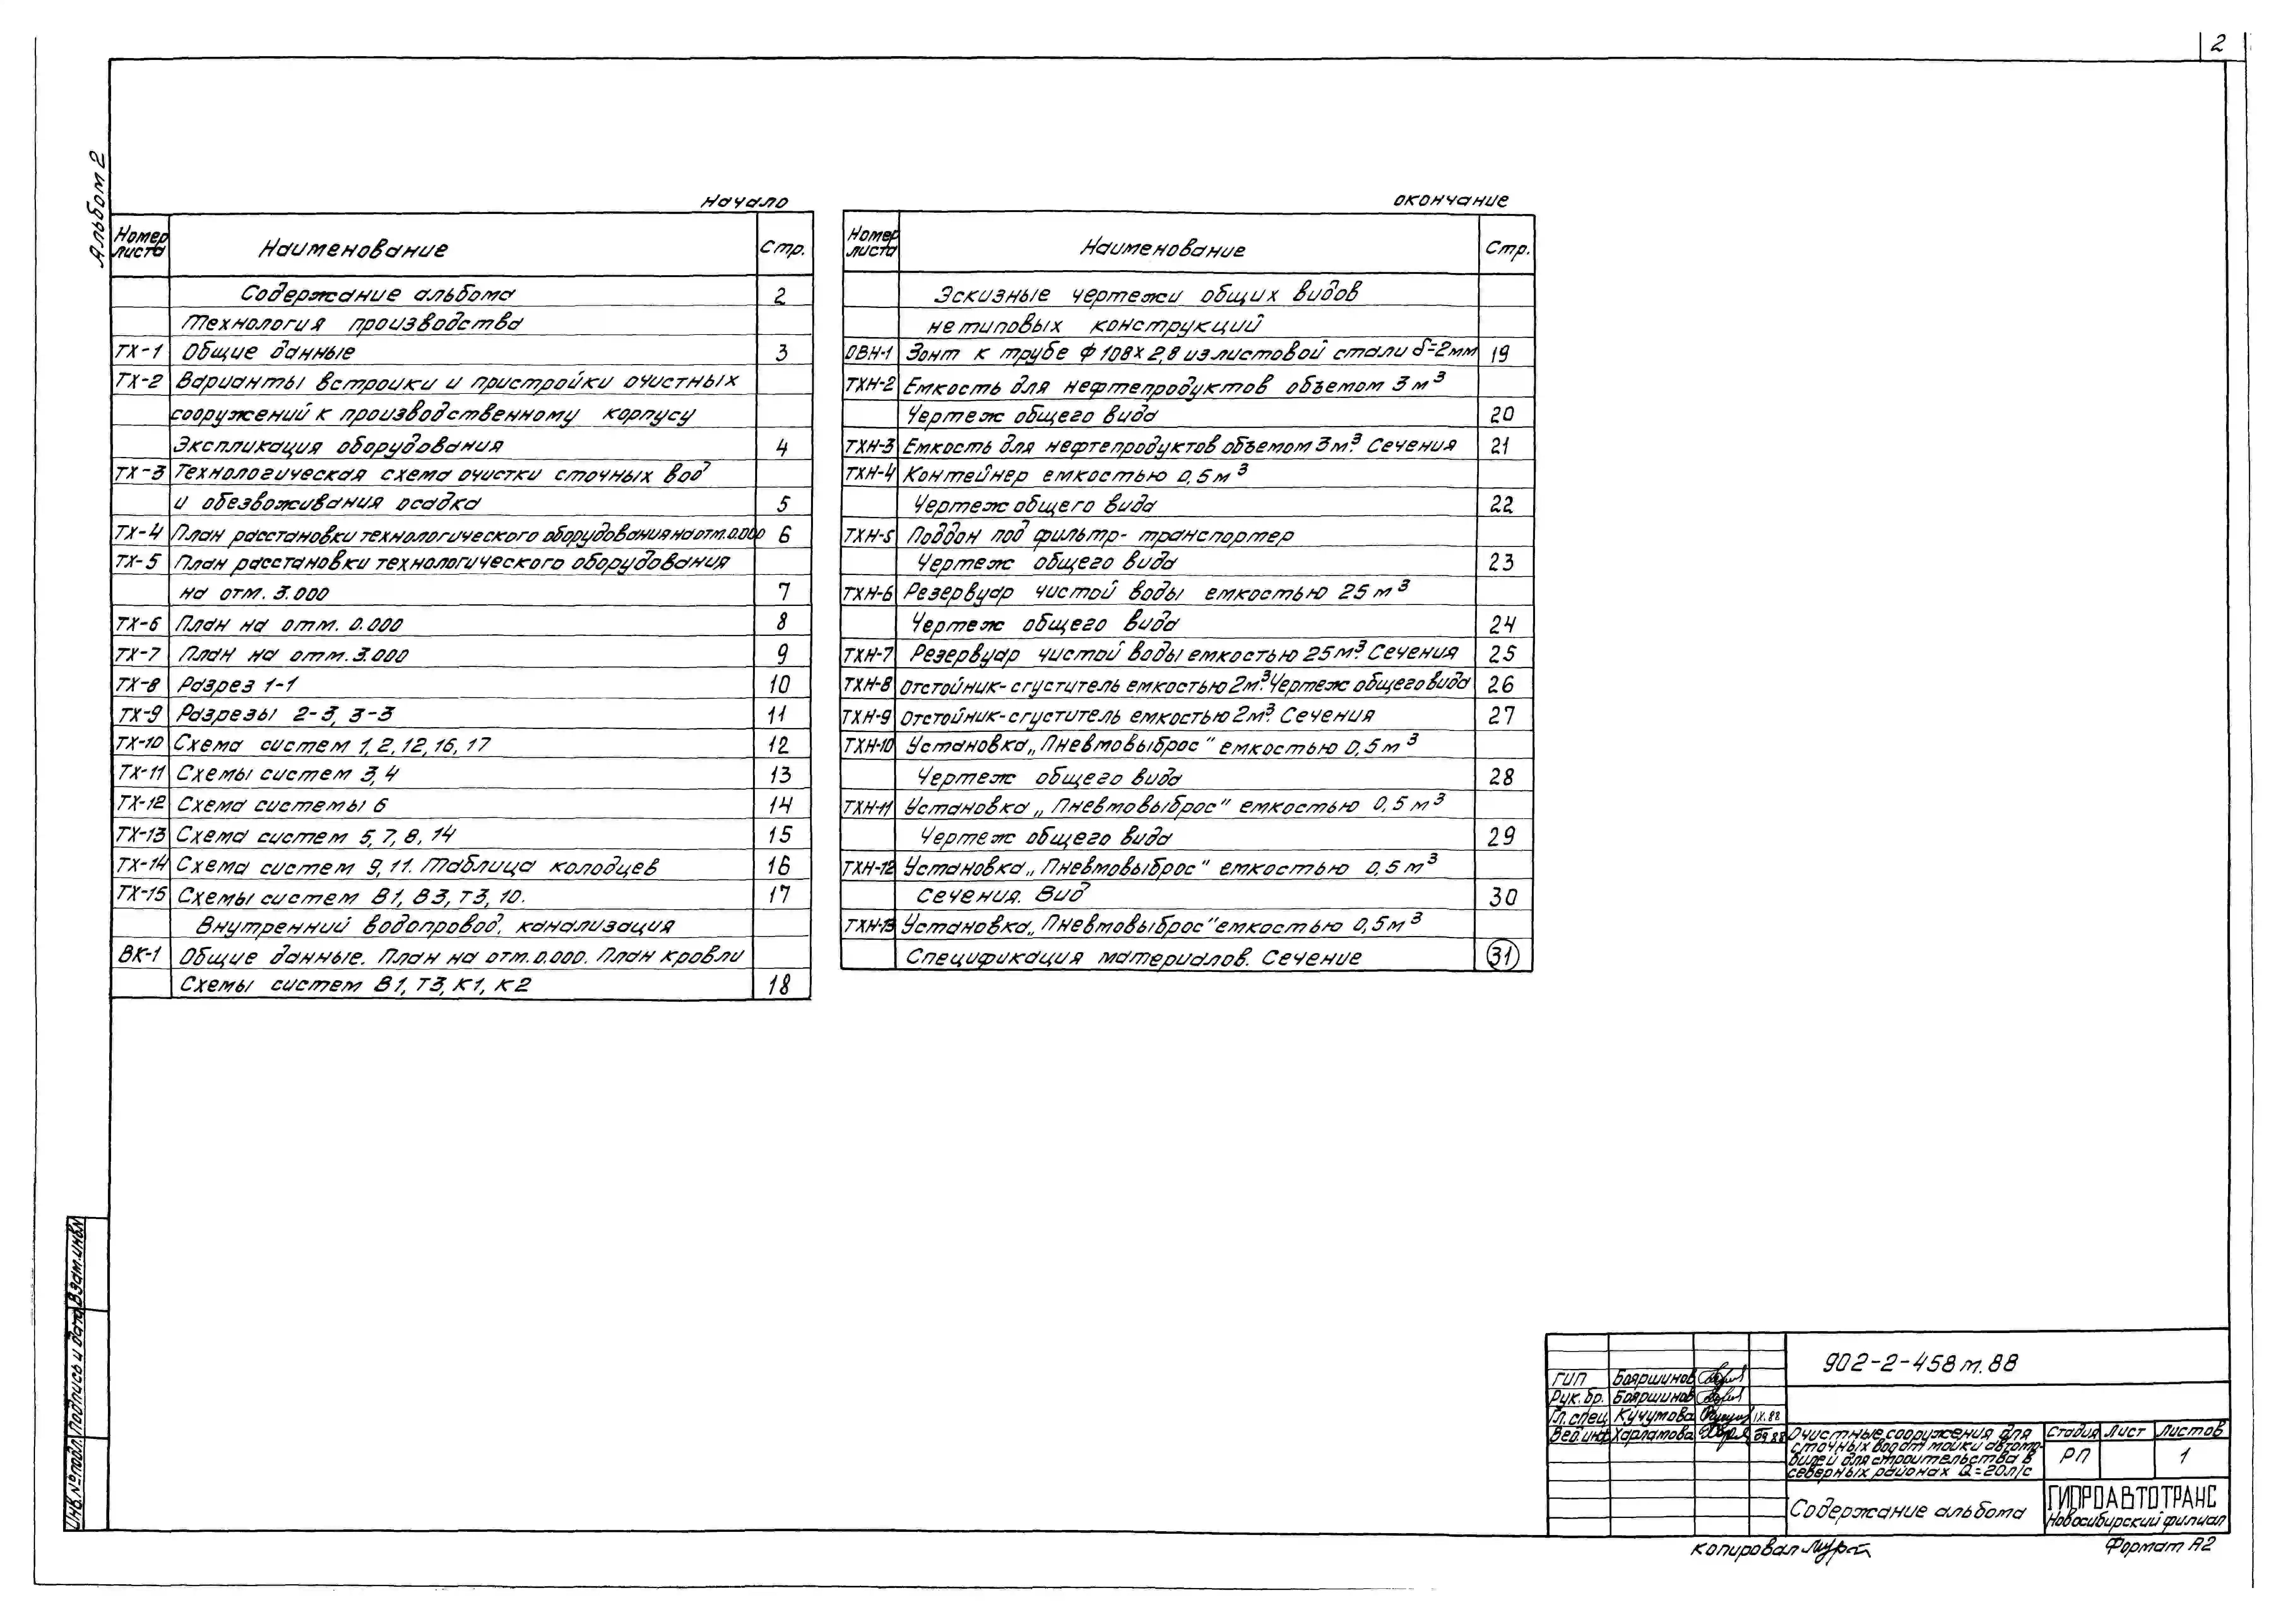 2
Альбом 2
Начало
Номер листа Наименование Стр.
Содержание альбома 2
Технология производства
ТХ-1 Общие данные 3
ТХ-2 Варианты встройки и пристройки очистных
сооружений к производственному корпусу
Экспликация оборудования 4
ТХ-3 Технологическая схема очистки сточных вод
и обезвоживания осадка 5
ТХ-4 План расстановки технологического оборудования на отм. 0.000 6
ТХ-5 План расстановки технологического оборудования
на отм. 3.000 7
ТХ-6 План на отм. 0.000 8
ТХ-7 План на отм. 3.000 9
ТХ-8 Разрез 1-1 10
ТХ-9 Разрезы 2-3, 3-3 11
ТХ-10 Схема систем 1, 2, 12, 16, 17 12
ТХ-11 Схемы систем 3, 4 13
ТХ-12 Схема системы 6 14
ТХ-13 Схема систем 5, 7, 8, 14 15
ТХ-14 Схема систем 9, 11. Таблица колодцев 16
ТХ-15 Схемы систем В1, В3, Т3, 10. 17
Внутренний водопровод, канализация
ВК-1 Общие данные. План на отм. 0.000. План кровли
Схемы систем В1, Т3, К1, К2 18
окончание
Номер листа Наименование Стр.
Эскизные чертежи общих видов
нетиповых конструкций
ОВН-1 Зонт к трубе Ф 108х2,8 из листовой стали δ=2мм 19
ТХН-2 Емкость для нефтепродуктов объемом 3 м³
Чертеж общего вида 20
ТХН-3 Емкость для нефтепродуктов объемом 3м³. Сечения 21
ТХН-4 Контейнер емкостью 0,5 м³
Чертеж общего вида 22
ТХН-5 Поддон под фильтр- транспортер
Чертеж общего вида 23
ТХН-6 Резервуар чистой воды емкостью 25 м³
Чертеж общего вида 24
ТХН-7 Резервуар чистой воды емкостью 25м³. Сечения 25
ТХН-8 Отстойник-сгуститель емкостью 2м³. Чертеж общего вида 26
ТХН-9 Отстойник-сгуститель емкостью 2м³. Сечения 27
ТХН-10 Установка „Пневмовыброс" емкостью 0,5 м³
Чертеж общего вида 28
ТХН-11 Установка „Пневмовыброс" емкостью 0,5 м³
Чертеж общего вида 29
ТХН-12 Установка „Пневмовыброс" емкостью 0,5 м³
Сечения. Вид 30
ТХН-13 Установка „Пневмовыброс" емкостью 0,5м³
Спецификация материалов. Сечение 31
Инв.№подл. Подпись и дата Взам.инв.№
902-2-458 м.88
ГИП Бояршинов
Рук. бр. Бояршинов
Гл. спец. Кучумова IX.88
Вед.инж Харламова 09.88
Очистные сооружения для
сточных вод от мойки автомо-
билей для строительства в
северных районах Q=20л/с
Стадия Лист Листов
РП 1
Содержание альбома
ГИПРОАВТОТРАНС
Новосибирский филиал
Копировал
Формат А2